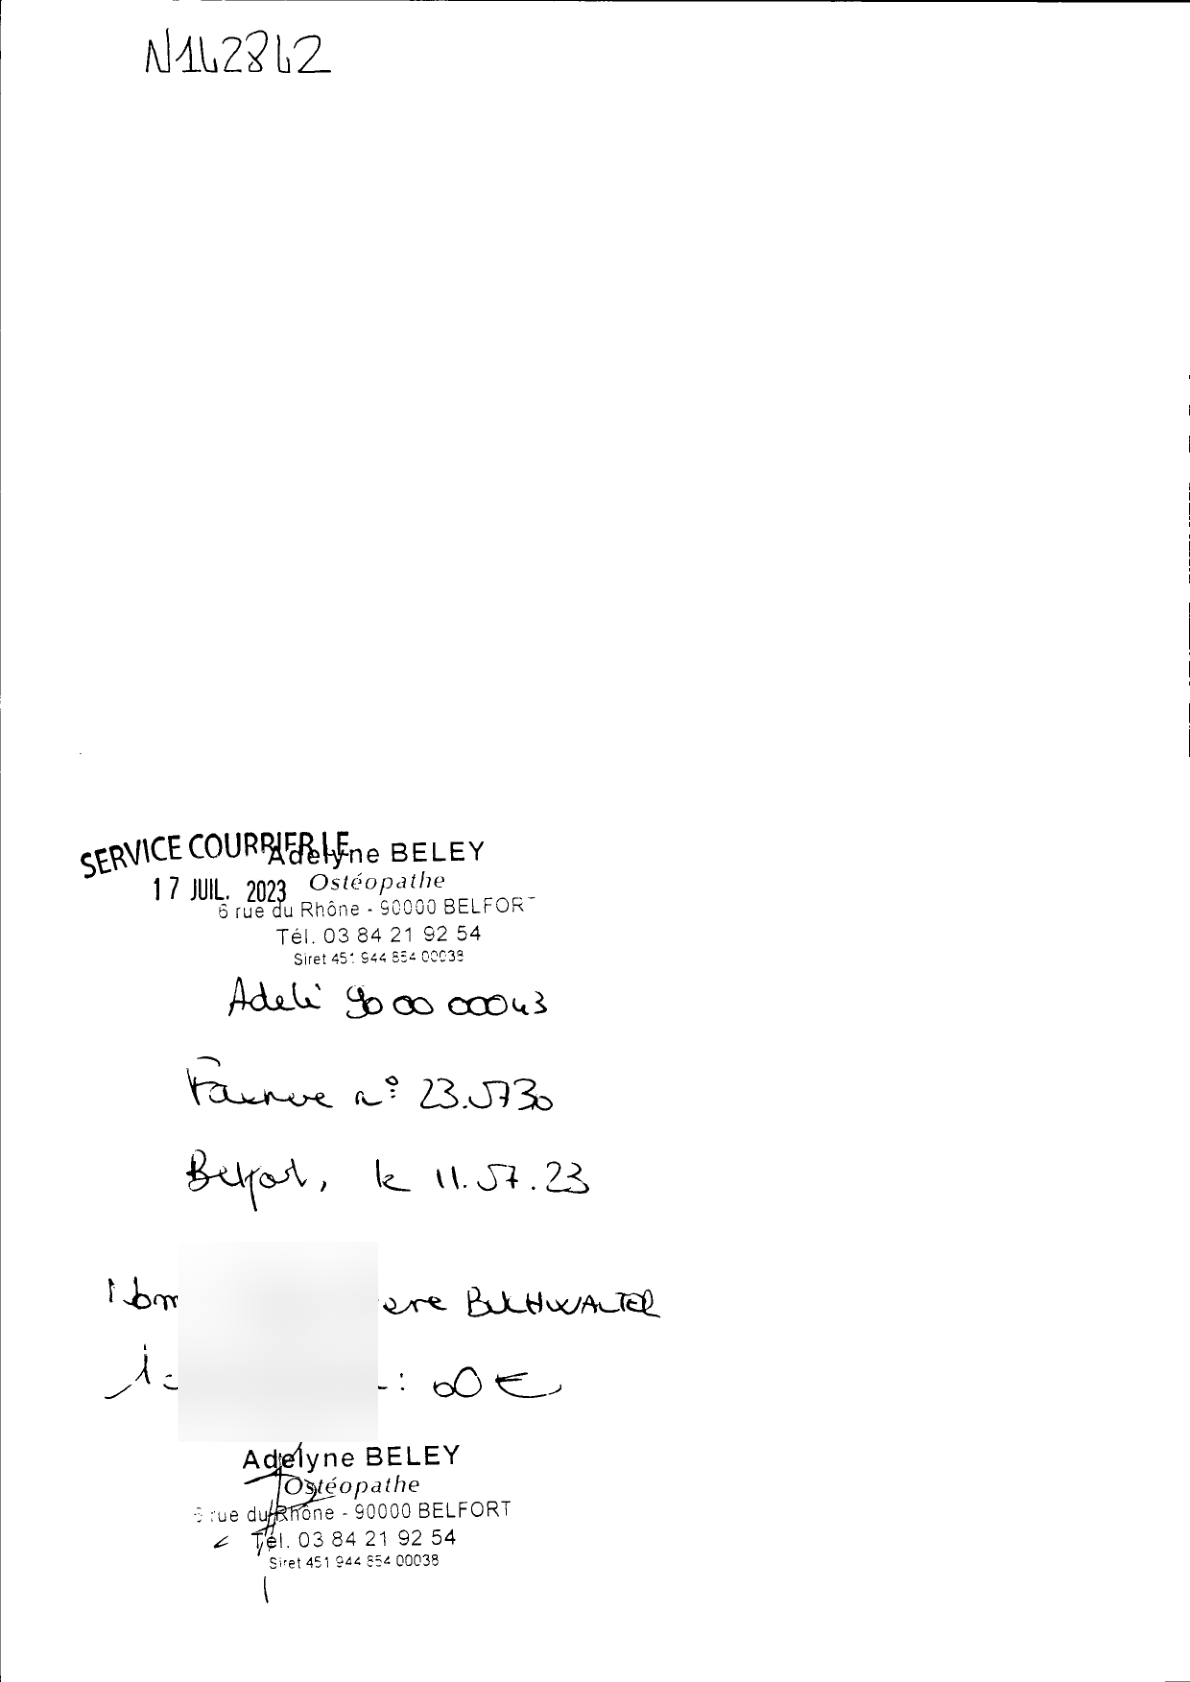 N142842
SERVICE COURRIER LE
17 JUIL. 2023
Adelyne BELEY
Ostéopathe
6 rue du Rhône - 90000 BELFORT
Tél. 03 84 21 92 54
Siret 451 944 854 00038
Adeli 90 00 00043
Facture n° 23.5730
Belfort, le 11.57.23
BUCHWALTER
: 60 €
Adelyne BELEY
Ostéopathe
6 rue du Rhône - 90000 BELFORT
Tél. 03 84 21 92 54
Siret 451 944 854 00038